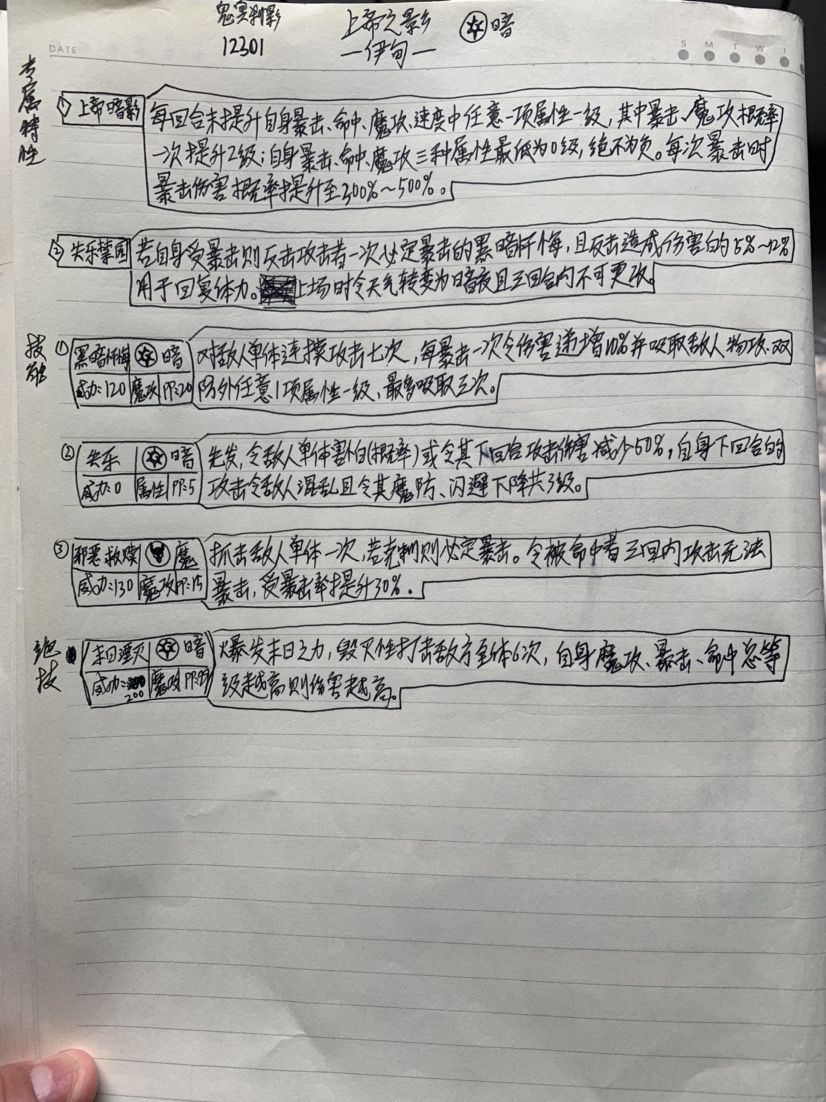 鬼冥刹影
12301
上帝之影
—伊甸—
暗
DATE
S M T W T
专属特性
① 上帝暗影
每回合末提升自身暴击、命中、魔攻、速度中任意一项属性一级,其中暴击、魔攻概率
一次提升2级;自身暴击、命中、魔攻三种属性最低为0级,绝不为负。每次暴击时
暴击伤害概率提升至200%~500%。
② 失乐禁园
若自身受暴击则反击攻击者一次必定暴击的黑暗忏悔,且反击造成伤害的5%~12%
用于回复体力。上场时令天气转变为暗夜且三回合内不可更改。
技能
① 黑暗忏悔 暗
威力:120 魔攻 PP:20
对敌人单体连续攻击七次,每暴击一次令伤害递增10%并吸取敌人物攻、双
防外任意1项属性一级,最多吸取三次。
② 失乐 暗
威力:0 属性 PP:5
先发,令敌人单体害怕(概率)或令其下回合攻击伤害减少50%,自身下回合的
攻击令敌人混乱且令其魔防、闪避下降共3级。
③ 邪恶救赎 魔
威力:130 魔攻 PP:15
抓击敌人单体一次,若克制则必定暴击。令被命中者三回内攻击无法
暴击,受暴击率提升30%。
绝技
末日湮灭 暗
威力:200 魔攻
爆发末日之力,毁灭性打击敌方全体6次,自身魔攻、暴击、命中总等
级越高则伤害越高。